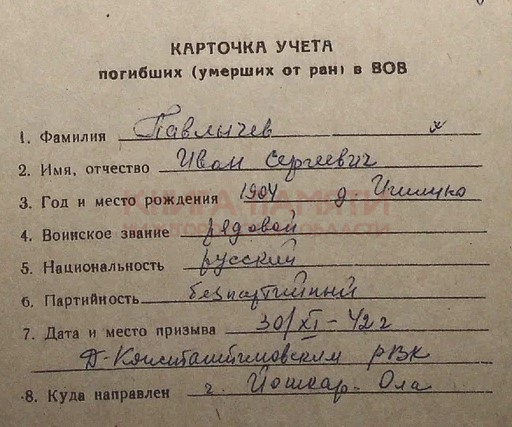 КАРТОЧКА УЧЕТА
погибших (умерших от ран) в ВОВ
1. Фамилия Павлычев х
2. Имя, отчество Иван Сергеевич
3. Год и место рождения 1904 д
КНИГА ПАМЯТИ
4. Воинское звание рядовой
5. Национальность русский
6. Партийность беспартийный
7. Дата и место призыва 30/XI-42г
Д-Константиновским РВК
8. Куда направлен г. Йошкар-Ола